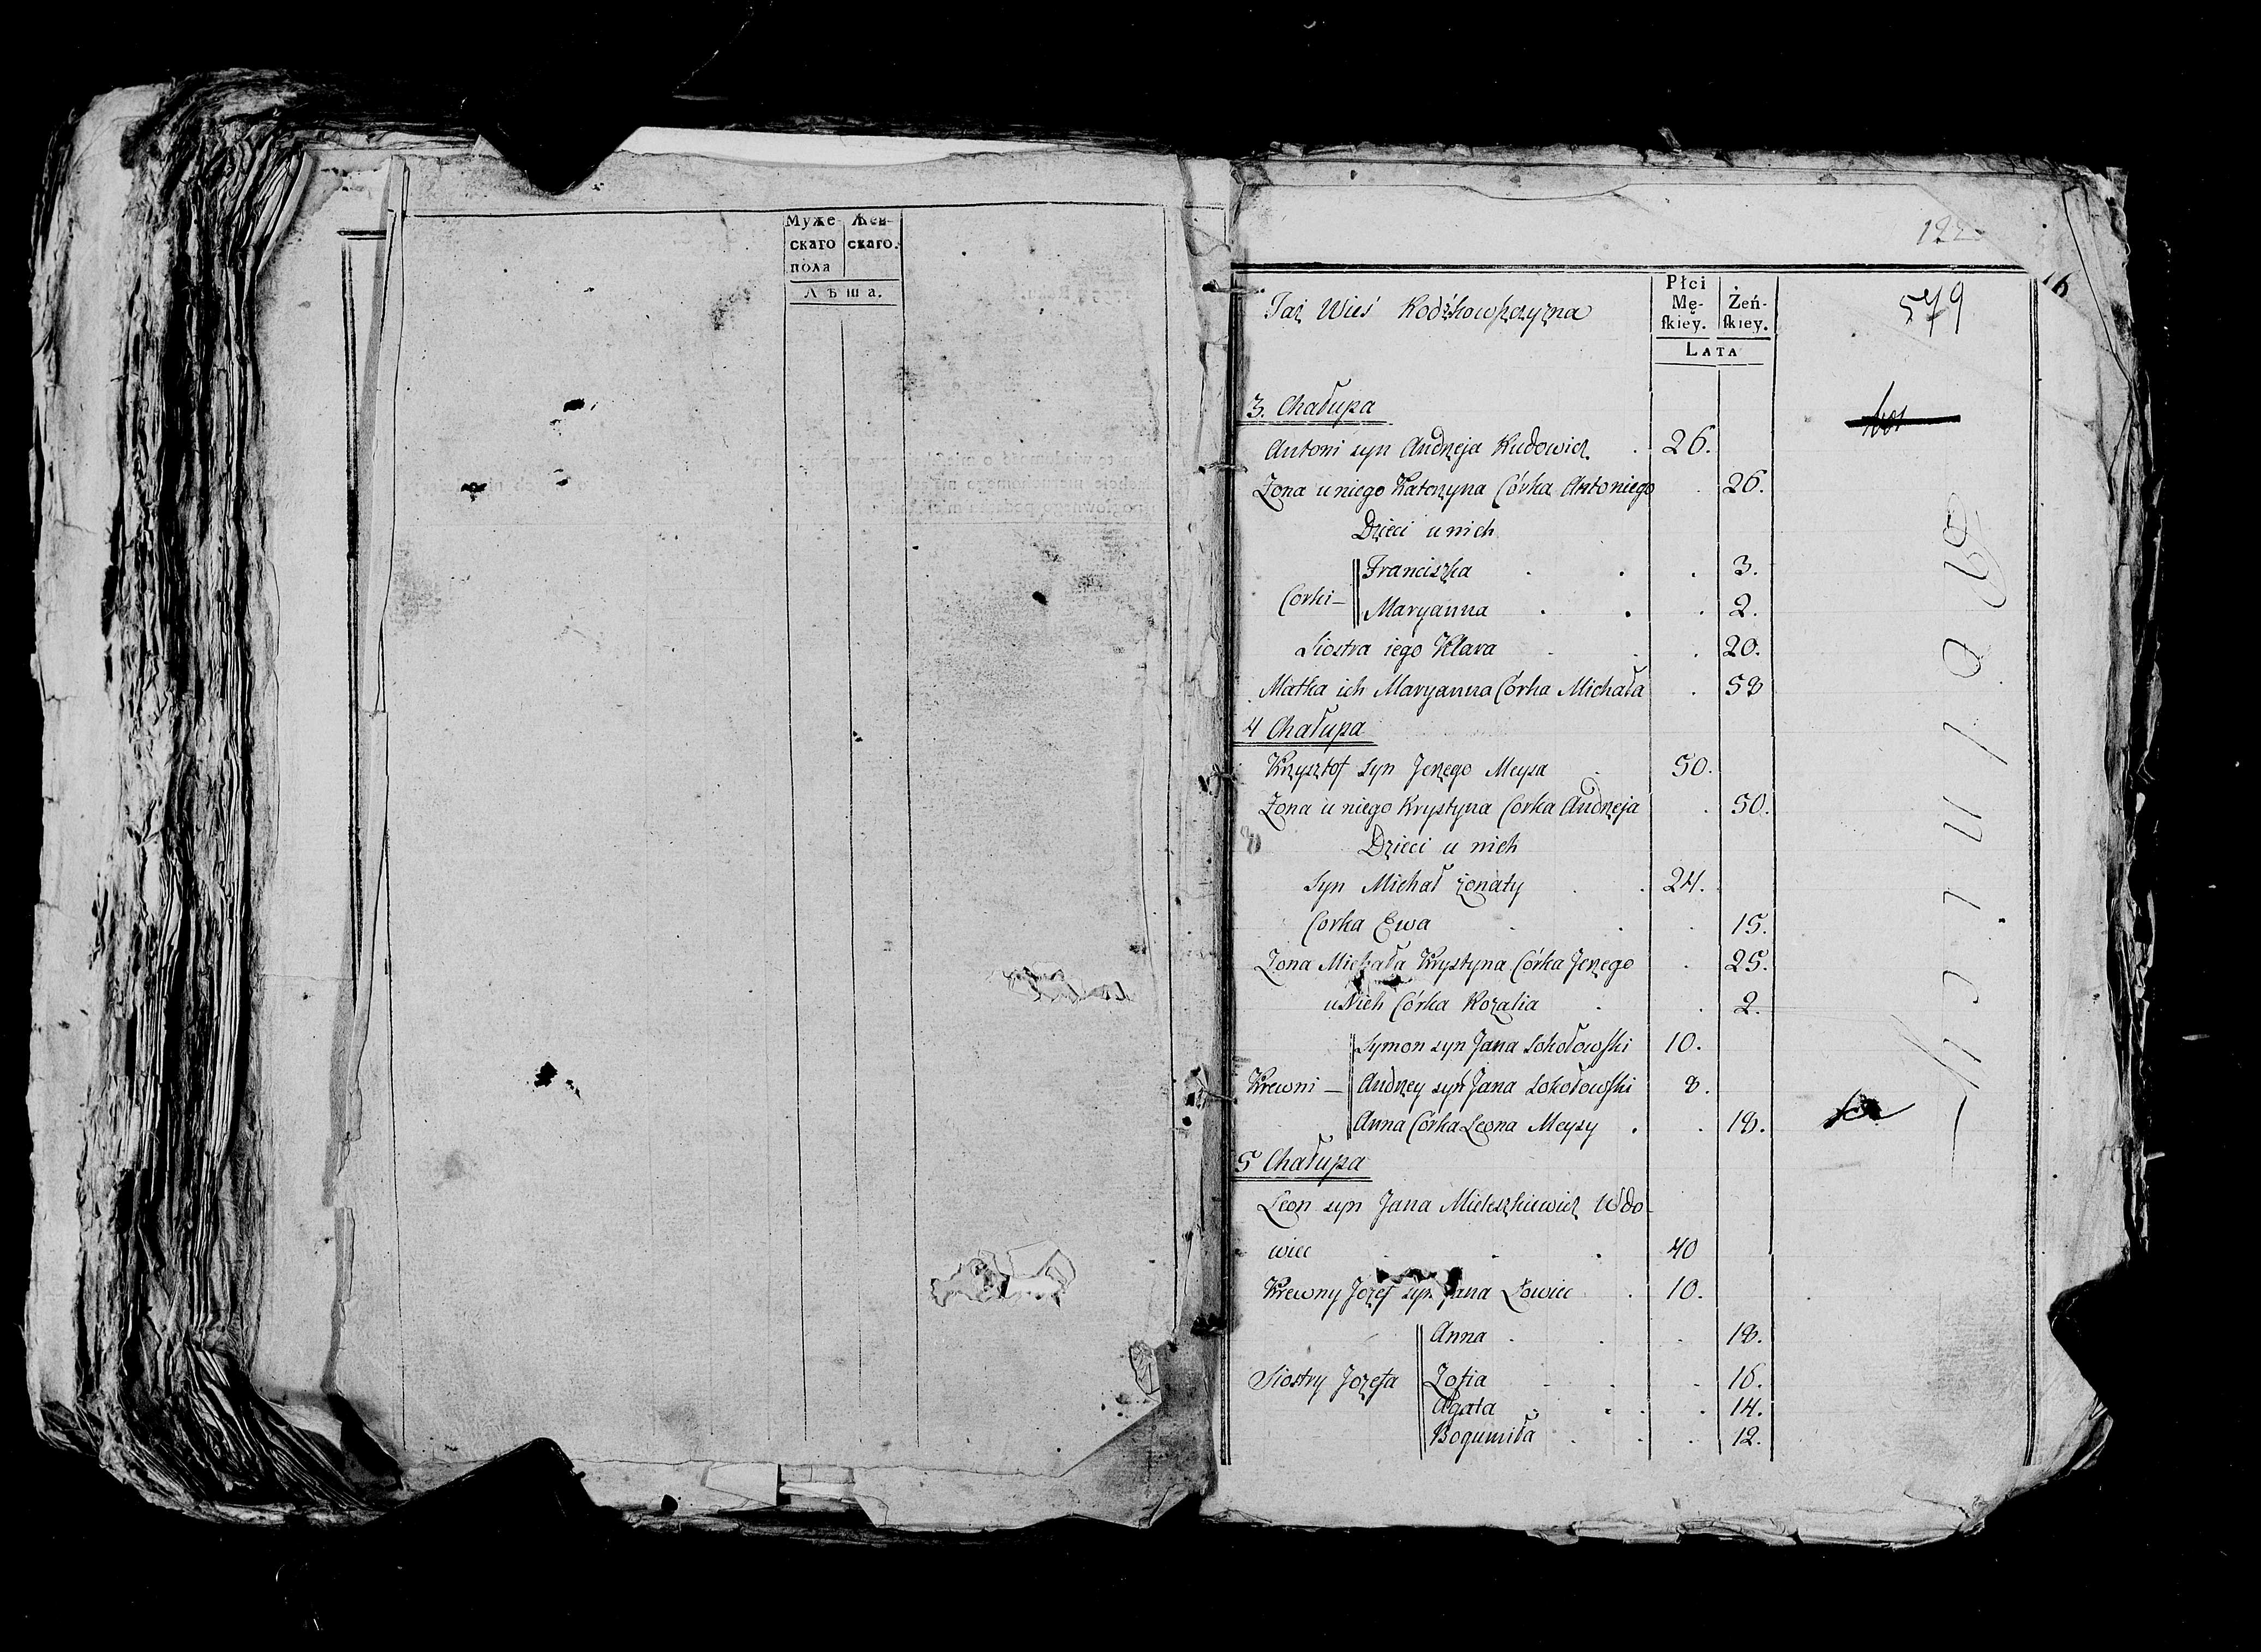 Муже- Жен-
скаго скаго.
пола
Лѣта.
122
16
Płci
Taż Wieś Kodźkowszczyzna Mę- Żeń- 579
skiey. skiey.
LATA
3. Chałupa
Antoni syn Andrzeja Kudowicz . 26.
Zona u niego Katerzyna Córka Antoniego . 26.
Dzieci u nich
Franciszka . . . 3.
Corki —
Maryanna . . . 2.
Siostra iego Klara . . . 20.
Matka ich Maryanna Córka Michała . 58
4 Chałupa
Krzysztof syn Jerzego Meysa . 50.
Zona u niego Krystyna Corka Andrzeja . 50.
Dzieci u nich
Syn Michał żonaty . . 24.
Corka Ewa . . . 15.
Zona Michała Krystyna Córka Jerzego . 25.
u Nich Córka Rozalia . . 2.
Symon syn Jana Sokołowski 10.
Krewni — Andrzey syn Jana Sokołowski 8.
Anna Corka Leona Meysy . . 18.
5 Chałupa
Leon syn Jana Mieleszkiewicz Wdo-
wiec . . . 40
Krewny Jozef syn Jana Łowiec . 10.
Anna . . . 18.
Siostry Jozefa Zofia . . . 16.
Agata . . . 14.
Bogumiła . . . 12.